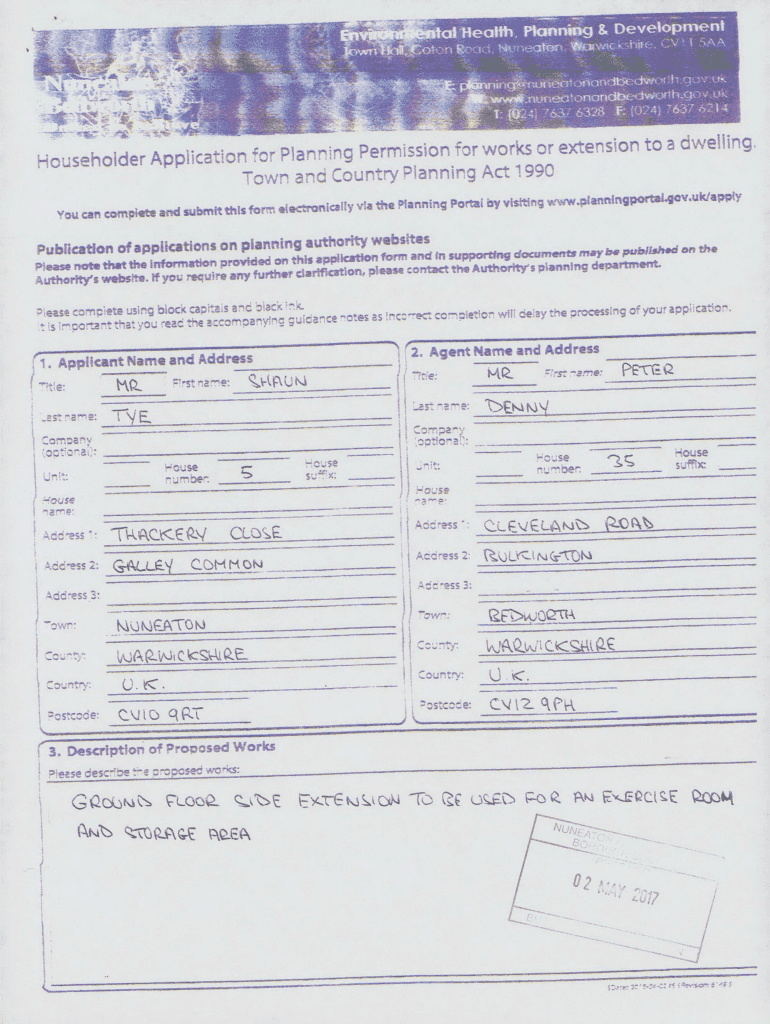 Environmental Health, Planning & Development
Town Hall, Coton Road, Nuneaton, Warwickshire, CV11 5AA
E: planning@nuneatonandbedworth.gov.uk
www.nuneatonandbedworth.gov.uk
T: (024) 7637 6328 F: (024) 7637 6214
Householder Application for Planning Permission for works or extension to a dwelling.
Town and Country Planning Act 1990
You can complete and submit this form electronically via the Planning Portal by visiting www.planningportal.gov.uk/apply
Publication of applications on planning authority websites
Please note that the information provided on this application form and in supporting documents may be published on the
Authority's website. If you require any further clarification, please contact the Authority's planning department.
Please complete using block capitals and black ink.
It is important that you read the accompanying guidance notes as incorrect completion will delay the processing of your application.
1. Applicant Name and Address
Title: MR First name: SHAUN
Last name: TYE
Company
(optional):
Unit: House number: 5 House suffix:
House
name:
Address 1: THACKERY CLOSE
Address 2: GALLEY COMMON
Address 3:
Town: NUNEATON
County: WARWICKSHIRE
Country: U.K.
Postcode: CV10 9RT
2. Agent Name and Address
Title: MR First name: PETER
Last name: DENNY
Company
(optional):
Unit: House number: 35 House suffix:
House
name:
Address 1: CLEVELAND ROAD
Address 2: BULKINGTON
Address 3:
Town: BEDWORTH
County: WARWICKSHIRE
Country: U.K.
Postcode: CV12 9PH
3. Description of Proposed Works
Please describe the proposed works:
GROUND FLOOR SIDE EXTENSION TO BE USED FOR AN EXERCISE ROOM
AND STORAGE AREA
NUNEATON
02 MAY 2017